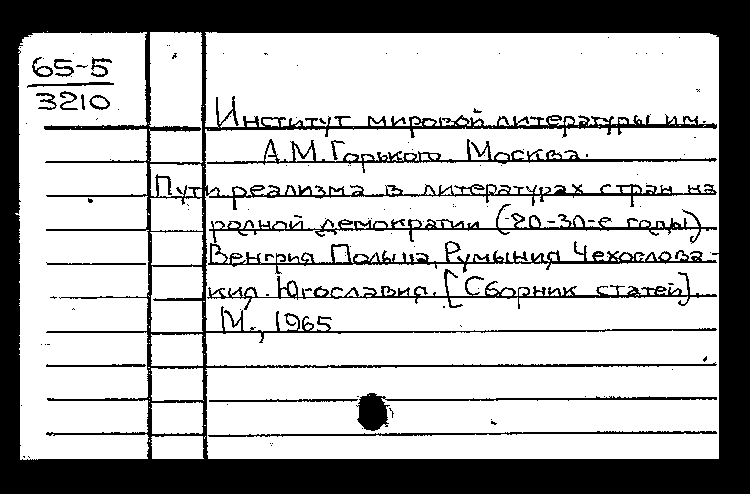 65-5
3210
Институт мировой литературы им.
А.М.Горького. Москва.
Пути реализма в литературах стран на
родной демократии (20-30-е годы).
Венгрия Польша, Румыния Чехослова-
кия. Югославия. [Сборник статей].
М., 1965